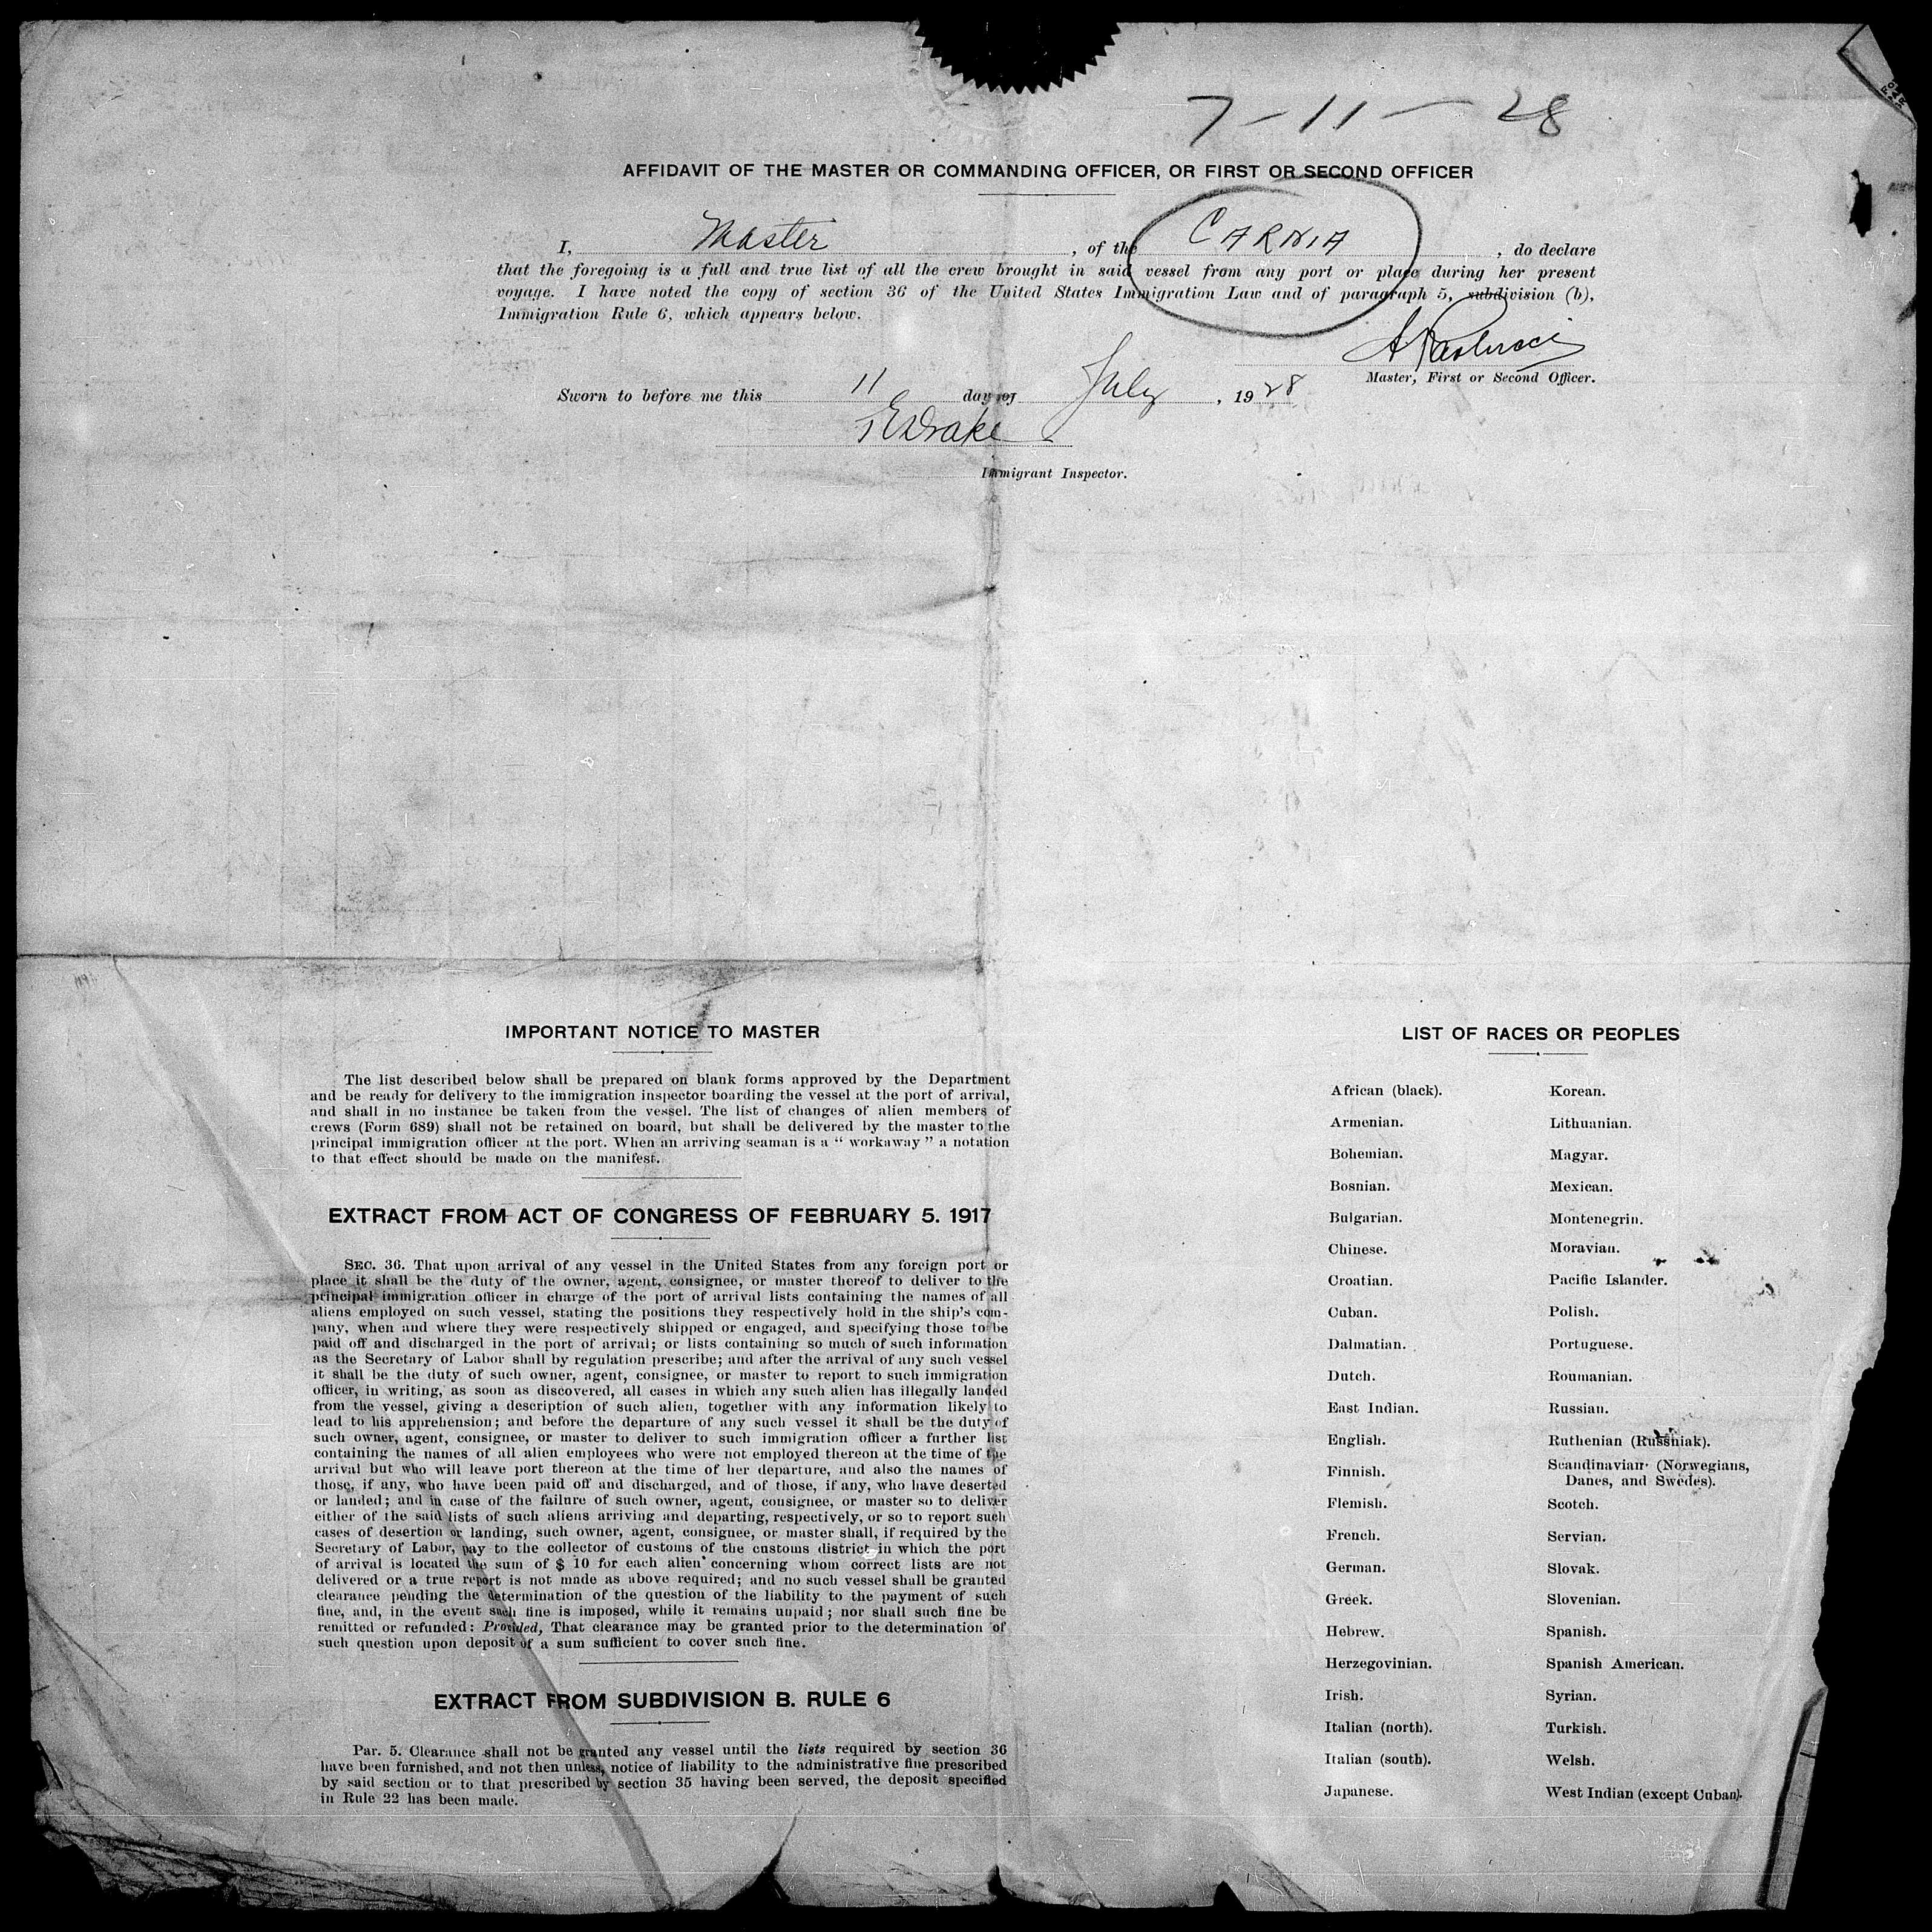 7-11-28
AFFIDAVIT OF THE MASTER OR COMMANDING OFFICER, OR FIRST OR SECOND OFFICER
I, Master, of the CARNIA, do declare
that the foregoing is a full and true list of all the crew brought in said vessel from any port or place during her present
voyage. I have noted the copy of section 36 of the United States Immigration Law and of paragraph 5, subdivision (b),
Immigration Rule 6, which appears below.
Master, First or Second Officer.
Sworn to before me this 11 day of July, 1928
Drake
Immigrant Inspector.
IMPORTANT NOTICE TO MASTER
The list described below shall be prepared on blank forms approved by the Department
and be ready for delivery to the immigration inspector boarding the vessel at the port of arrival,
and shall in no instance be taken from the vessel. The list of changes of alien members of
crews (Form 689) shall not be retained on board, but shall be delivered by the master to the
principal immigration officer at the port. When an arriving seaman is a “ workaway ” a notation
to that effect should be made on the manifest.
EXTRACT FROM ACT OF CONGRESS OF FEBRUARY 5. 1917
SEC. 36. That upon arrival of any vessel in the United States from any foreign port or
place it shall be the duty of the owner, agent, consignee, or master thereof to deliver to the
principal immigration officer in charge of the port of arrival lists containing the names of all
aliens employed on such vessel, stating the positions they respectively hold in the ship's com-
pany, when and where they were respectively shipped or engaged, and specifying those to be
paid off and discharged in the port of arrival; or lists containing so much of such information
as the Secretary of Labor shall by regulation prescribe; and after the arrival of any such vessel
it shall be the duty of such owner, agent, consignee, or master to report to such immigration
officer, in writing, as soon as discovered, all cases in which any such alien has illegally landed
from the vessel, giving a description of such alien, together with any information likely to
lead to his apprehension; and before the departure of any such vessel it shall be the duty of
such owner, agent, consignee, or master to deliver to such immigration officer a further list
containing the names of all alien employees who were not employed thereon at the time of the
arrival but who will leave port thereon at the time of her departure, and also the names of
those, if any, who have been paid off and discharged, and of those, if any, who have deserted
or landed; and in case of the failure of such owner, agent, consignee, or master so to deliver
either of the said lists of such aliens arriving and departing, respectively, or so to report such
cases of desertion or landing, such owner, agent, consignee, or master shall, if required by the
Secretary of Labor, pay to the collector of customs of the customs district in which the port
of arrival is located the sum of $ 10 for each alien concerning whom correct lists are not
delivered or a true report is not made as above required; and no such vessel shall be granted
clearance pending the determination of the question of the liability to the payment of such
fine, and, in the event such fine is imposed, while it remains unpaid; nor shall such fine be
remitted or refunded: Provided, That clearance may be granted prior to the determination of
such question upon deposit of a sum sufficient to cover such fine.
EXTRACT FROM SUBDIVISION B. RULE 6
Par. 5. Clearance shall not be granted any vessel until the lists required by section 36
have been furnished, and not then unless, notice of liability to the administrative fine prescribed
by said section or to that prescribed by section 35 having been served, the deposit specified
in Rule 22 has been made.
LIST OF RACES OR PEOPLES
African (black).
Armenian.
Bohemian.
Bosnian.
Bulgarian.
Chinese.
Croatian.
Cuban.
Dalmatian.
Dutch.
East Indian.
English.
Finnish.
Flemish.
French.
German.
Greek.
Hebrew.
Herzegovinian.
Irish.
Italian (north).
Italian (south).
Japanese.
Korean.
Lithuanian.
Magyar.
Mexican.
Montenegrin.
Moravian.
Pacific Islander.
Polish.
Portuguese.
Roumanian.
Russian.
Ruthenian (Russniak).
Scandinavian (Norwegians,
Danes, and Swedes).
Scotch.
Servian.
Slovak.
Slovenian.
Spanish.
Spanish American.
Syrian.
Turkish.
Welsh.
West Indian (except Cuban).